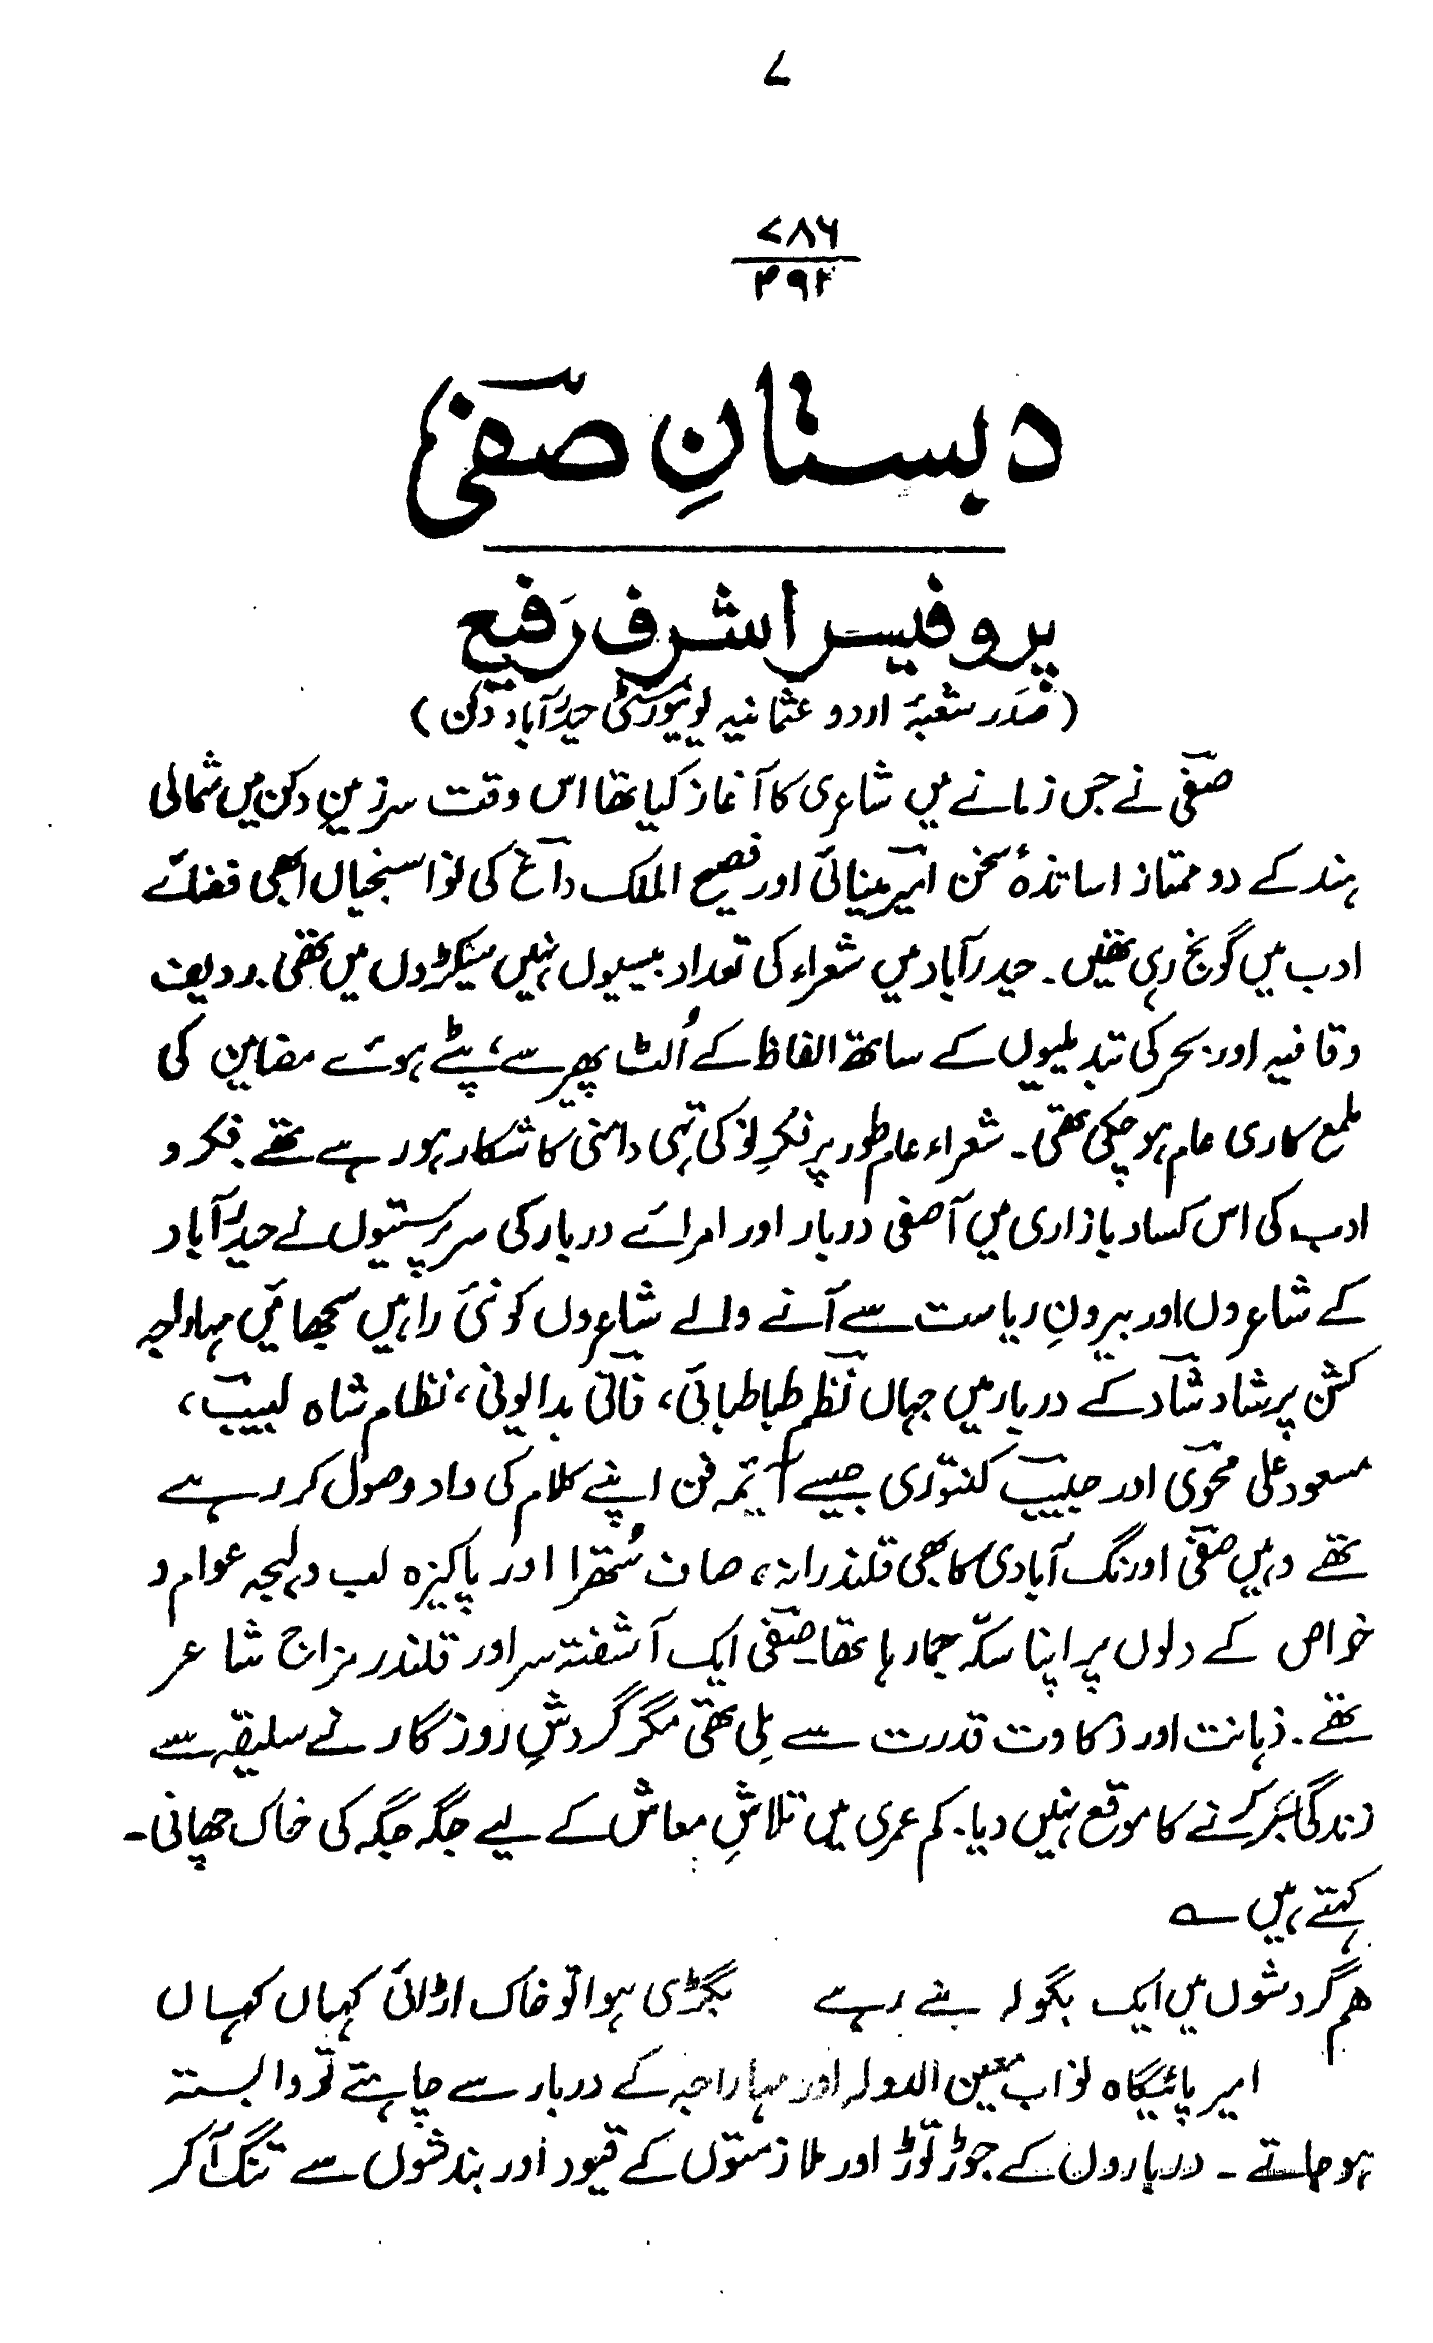 ۷
۷۸۶
۴۹۲
دبستانِ صفیؔ
پروفیسر اشرف رفیع
(صدر شعبۂ اردو عثمانیہ یونیورسٹی حیدرآباد دکن)
صفیؔ نے جس زمانے میں شاعری کا آغاز کیا تھا اس وقت سرزمینِ دکن میں شمالی
ہند کے دو ممتاز اساتذۂ سخن امیرؔ مینائی اور فصیح الملک داغؔ کی نوا سنجیاں ابھی فضائے
ادب میں گونج رہی تھیں۔ حیدرآباد میں شعراء کی تعداد بیسیوں نہیں سیکڑوں میں تھی۔ ردیف
و قافیہ اور بحر کی تبدیلیوں کے ساتھ الفاظ کے اُلٹ پھیر سے، پٹے ہوئے مضامین کی
ملمع کاری عام ہو چکی تھی۔ شعراء عام طور پر فکرِ نو کی تہی دامنی کا شکار ہو رہے تھے۔ فکر و
ادب کی اس کساد بازاری میں آصفی دربار اور امرائے دربار کی سرپرستیوں نے حیدرآباد
کے شاعروں اور بیرونِ ریاست سے آنے والے شاعروں کو نئی راہیں سجھائیں مہاراجہ
کشن پرشاد شادؔ کے دربار میں جہاں نظمؔ طباطبائی، فانیؔ بدایونی، نظام شاہ لبیبؔ،
مسعود علی محویؔ اور حبیبؔ کنتوری جیسے آئمہ فن اپنے کلام کی داد وصول کر رہے
تھے وہیں صفیؔ اورنگ آبادی کا بھی قلندرانہ، صاف سُتھرا اور پاکیزہ لب ولہجہ عوام و
خواص کے دلوں پر اپنا سکّہ جما رہا تھا۔ صفیؔ ایک آشفتہ سر اور قلندر مزاج شاعر
تھے۔ ذہانت اور ذکاوت قدرت سے مِلی تھی مگر گردشِ روزگار نے سلیقہ سے
زندگی بسر کرنے کا موقع نہیں دیا۔ کم عمری میں تلاشِ معاش کے لیے جگہ جگہ کی خاک چھانی۔
کہتے ہیں ؎
ہم گردشوں میں ایک بگولہ بنے رہے     بگڑی ہوا تو خاک اڑائی کہاں کہاں
امیر پائیگاہ نواب معین الدولہ اور مہاراجہ کے دربار سے چاہتے تو وابستہ
ہو جاتے۔ درباروں کے جوڑ توڑ اور ملازمتوں کے قیود اور بندشوں سے تنگ آکر